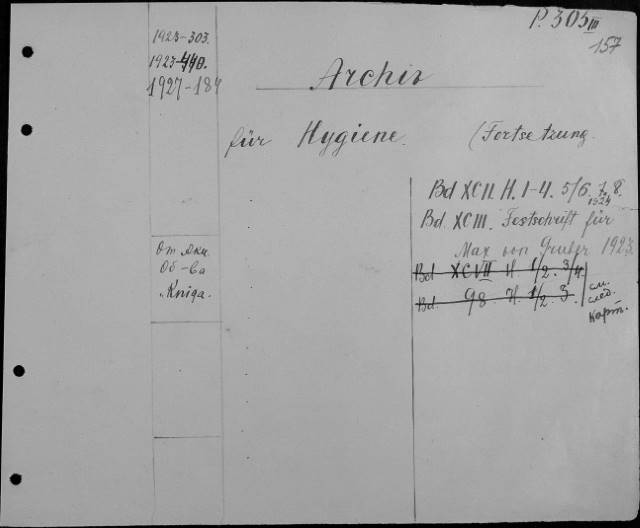 P. 305 III
157
1923-303.
1923-440.
1927-184
Archiv
für Hygiene.
(Fortsetzung.
Bd XCII H. 1-4. 5/6. 7. 8.
1924
Bd. XCIII. Festschrift für
Max von Gruber 1923.
Bd XCVII H. 1/2. 3/4.
Bd. 98. H. 1/2. 3.
см.
след.
карт.
От Акц.
Об-ва
"Книга.